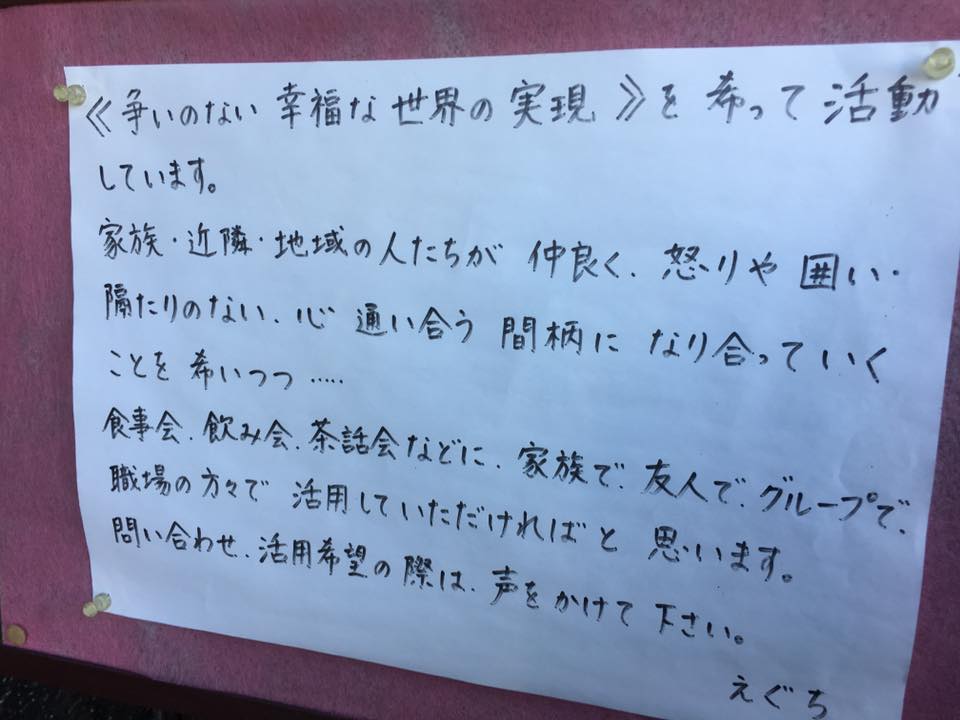 《争いのない 幸福な 世界の 実現》を 希って 活動
しています。
家族・近隣・地域の人たちが 仲良く、怒りや 囲い・
隔たりのない、心 通い合う 間柄に なり合っていく
ことを 希いつつ‥‥‥
食事会、飲み会、茶話会などに、家族で、友人で、グループで、
職場の方々で 活用していただければと 思います。
問い合わせ、活用希望の際は、声をかけて下さい。
えぐち